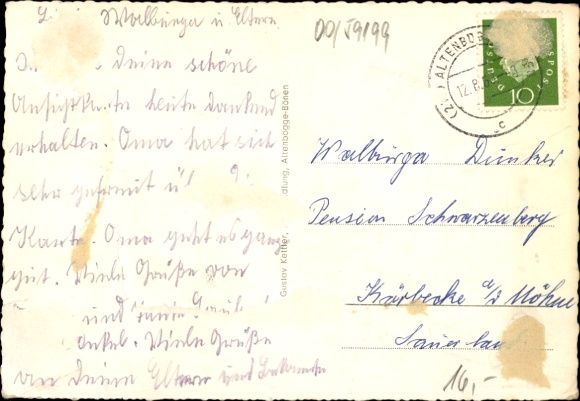 Walburga u. Eltern
deine schöne
Ansichtkarte heute dankend
erhalten. Oma hat sich
sehr gefreut
Karte. Oma geht es ganz
gut. Viele Grüße von
und
onkel. Viele Grüße
an deine Eltern und Bekannte
Gustav Kettler, dlung, Altenbögge-Bönen
00/59199
ALTENBÖG
12.8.
c
SPOST
10
Walburga Dunker
Pension Schwarzenberg
Körbecke a/d Möhne
Sauerlan
16,-